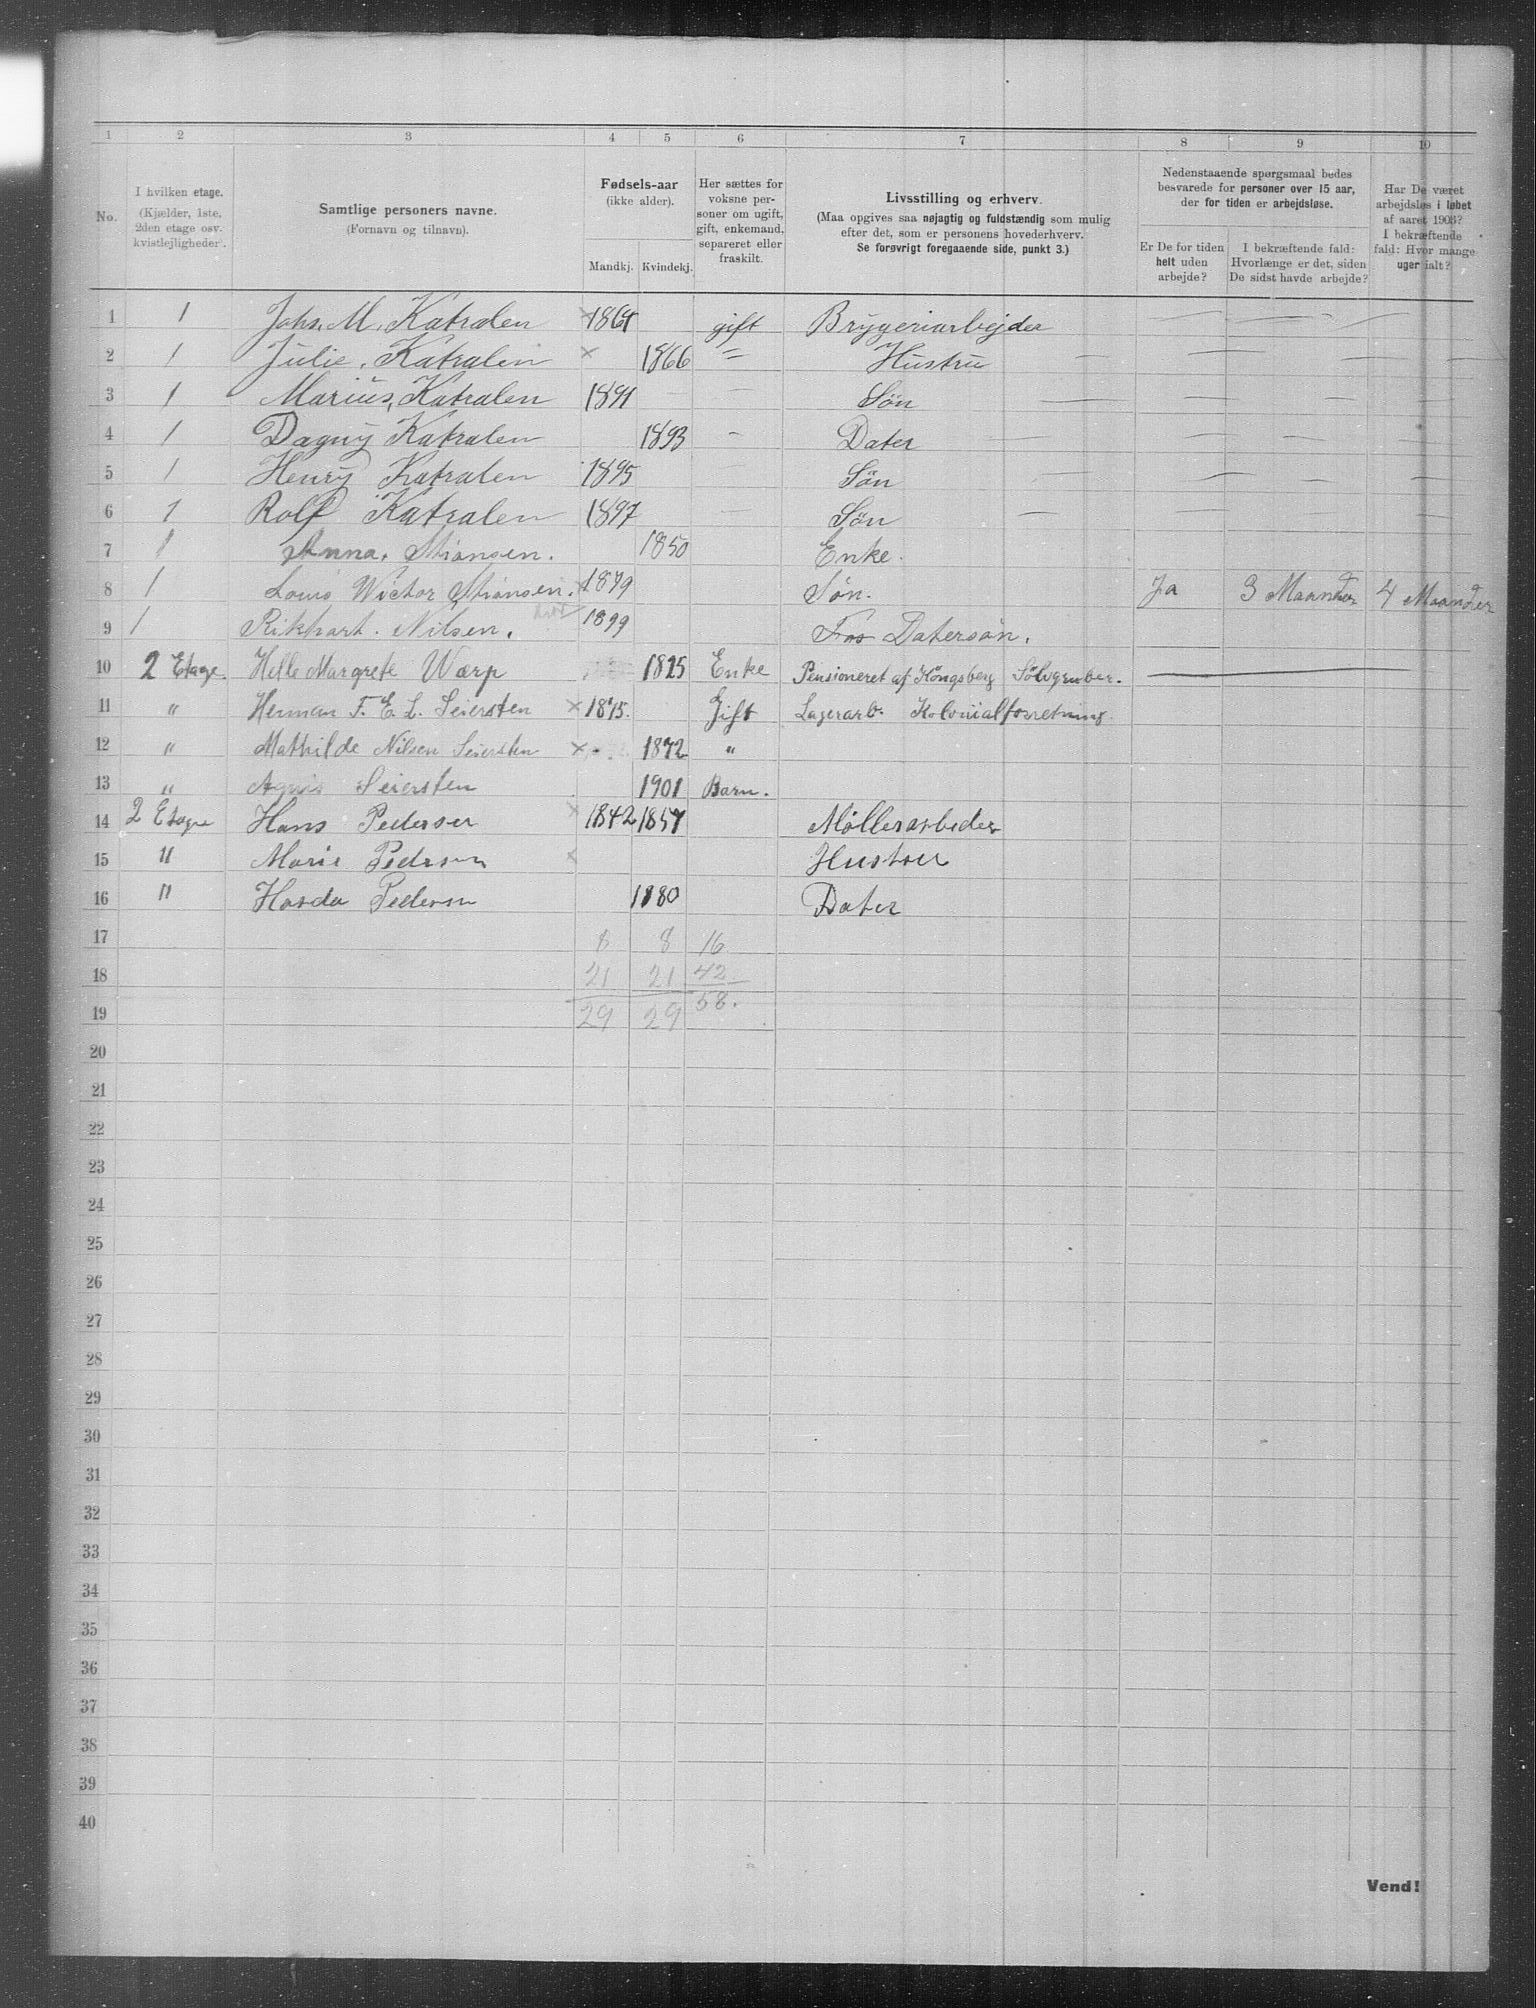 1 2 3 4 5 6 7 8 9 10
No.
I hvilken etage.
(Kjælder, 1ste,
2den etage osv.
kvistlejligheder).
Samtlige personers navne.
(Fornavn og tilnavn).
Fødsels-aar
(ikke alder).
Mandkj. Kvindekj.
Her sættes for
voksne per-
soner om ugift,
gift, enkemand,
separeret eller
fraskilt.
Livsstilling og erhverv.
(Maa opgives saa nøjagtig og fuldstændig som mulig
efter det, som er personens hovederhverv.
Se forøvrigt foregaaende side, punkt 3.)
Nedenstaaende spørgsmaal bedes
besvarede for personer over 15 aar,
der for tiden er arbejdsløse.
Er De for tiden
helt uden
arbejde?
I bekræftende fald:
Hvorlænge er det, siden
De sidst havde arbejde?
Har De været
arbejdsløs i løbet
af aaret 1903?
I bekræftende
fald: Hvor mange
uger ialt?
1 1 Johs. M. Katralen × gift Brygeriarbejder
2 1 Julie. Katralen × 1866 " Hustru
3 1 Marius, Katralen 1891 Søn
4 1 Dagny Katralen 1893 Dater
5 1 Henry Katralen 1895 Søn
6 1 Rolf Katralen 1897 Søn
7 1 Anna. Stiansen. 1850 Enke.
8 1 Louis Wictor Stiansen. 1879 Søn. Ja 3 Maander 4 Maander
9 1 Rikhart. Nilsen. 1899 Datersøn.
10 2 Etage. Helle Margrete Wærp 1825 Enke Pensioneret af Kongsberg Sølvgruber.
11 " Herman F. E. L. Seiersten × 1875. Gift Lagerarb. Kolonialforretning
12 " Mathilde Nilsen Seiersten × 1872 "
13 " Agnis Seiersten 1901 Barn.
14 2 Etage Hans Pedersen × 1842 1857 Møllerarbeder
15 " Marie Pedersen × Hustru
16 " Harda Pedersen 1880 Dater
17 8 8 16
18 21 21 42
19 29 29 58.
20
21
22
23
24
25
26
27
28
29
30
31
32
33
34
35
36
37
38
39
40
Vend!